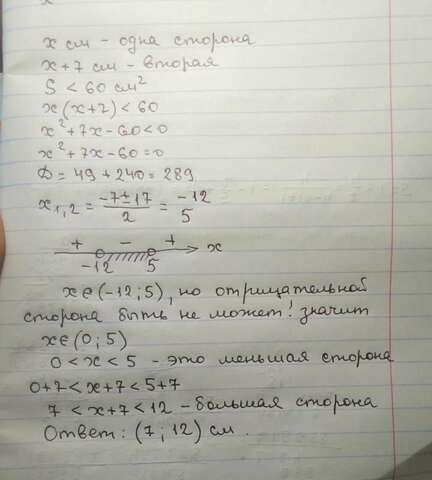 x см - одна сторона
x+7 см - вторая
S < 60 см²
x(x+2) < 60
x²+7x-60<0
x²+7x-60=0
D = 49 + 240 = 289
x₁,₂ = (-7±17)/2 = -12
5
+ - + x
-12 5
x∈(-12;5), но отрицательной
сторона быть не может! значит
x∈(0;5)
0<x<5 - это меньшая сторона
0+7<x+7<5+7
7<x+7<12 - большая сторона
Ответ: (7;12) см.